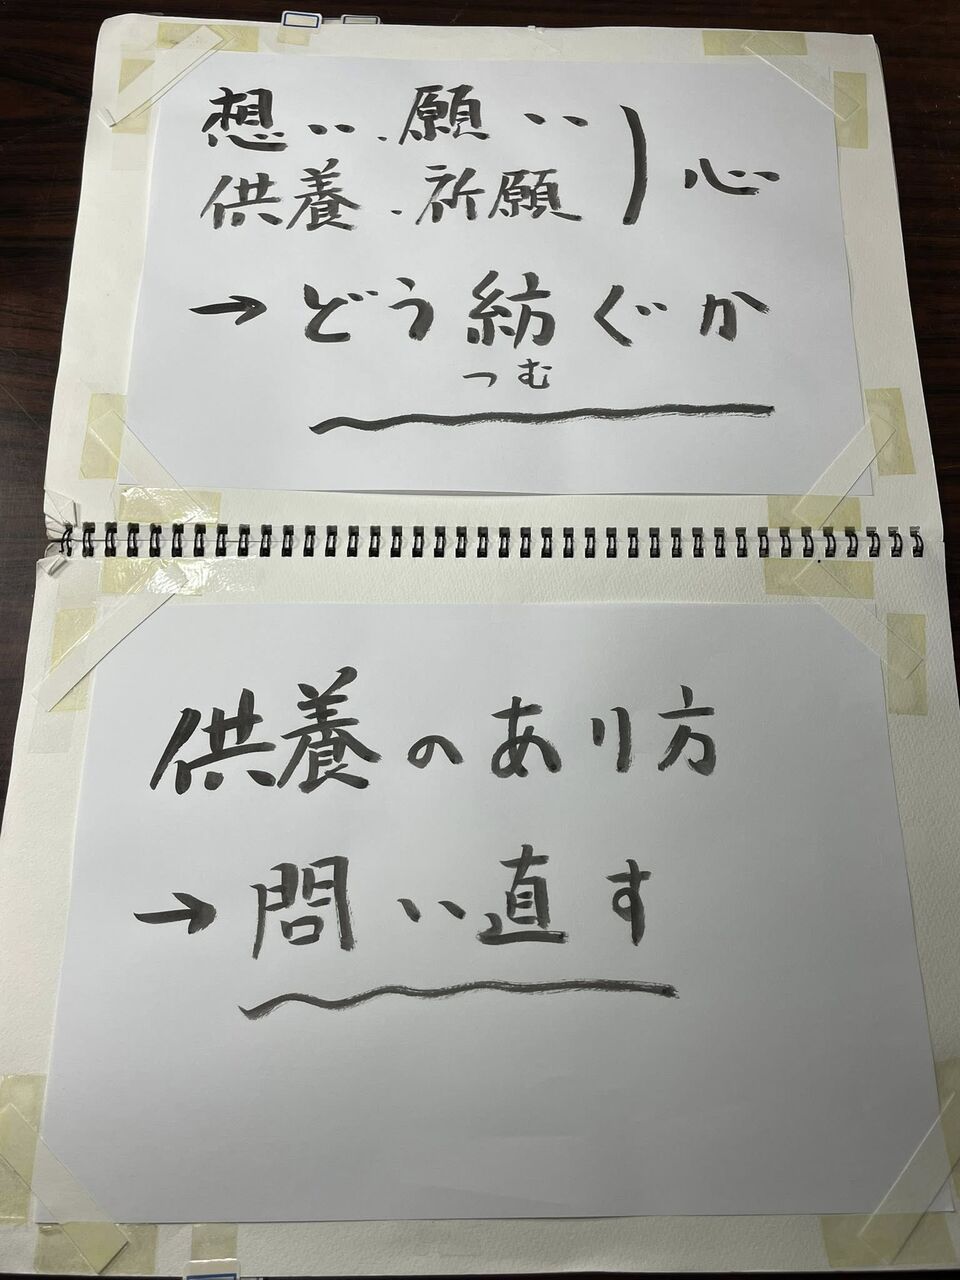 想い、願い
供養、祈願 ) 心
→どう紡ぐか
つむ
供養のあり方
→問い直す